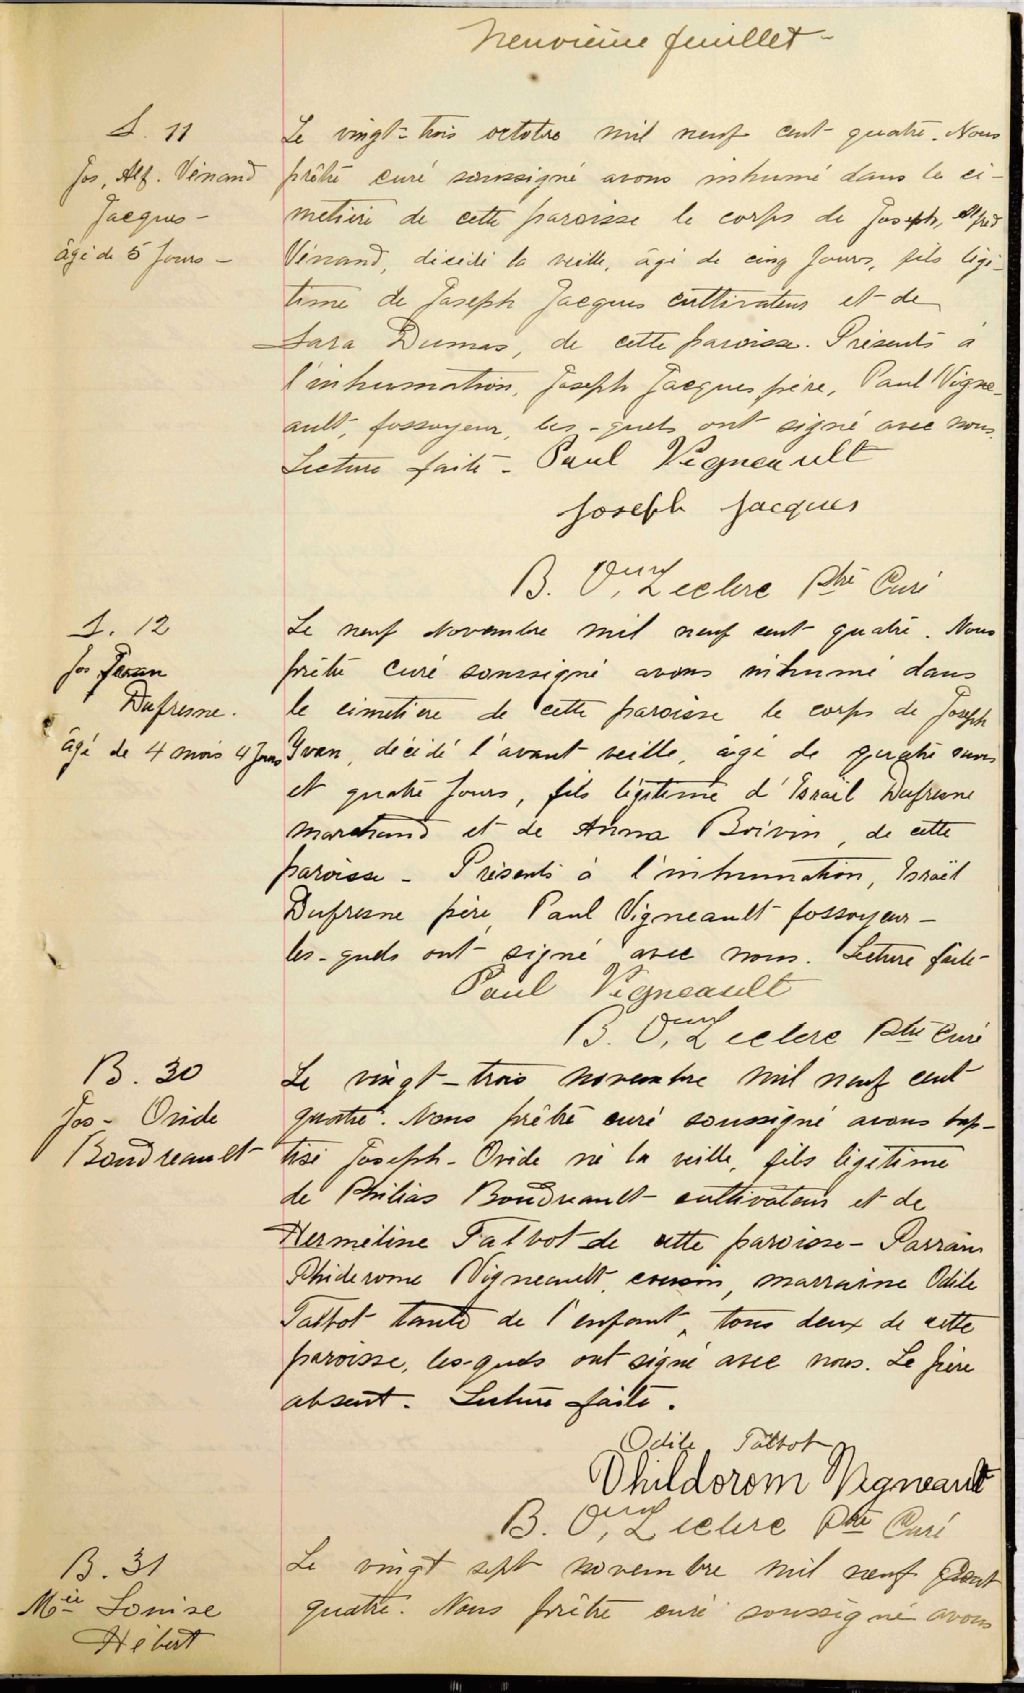 Neuvième feuillet -
S. 11
Jos, Alf. Vénand
Jacques -
âgé de 5 Jours -
Le vingt-trois octobre mil neuf cent quatre. Nous
prêtre curé soussigné avons inhumé dans le ci-
metière de cette paroisse le corps de Joseph, Alfred
Vénand, décédé la veille, âgé de cinq Jours, fils légi-
time de Joseph Jacques cultivateur et de
Sara Dumas, de cette paroisse. Présents à
l'inhumation, Joseph Jacques père, Paul Vigne-
ault, fossoyeur, les-quels ont signé avec nous.
Lecture faite - Paul Vigneault
Joseph Jacques
B. Leclerc Ptre Curé
S. 12
Jos Yvan
Dufresne.
âgé de 4 mois 4 Jours
Le neuf Novembre mil neuf cent quatre. Nous
prêtre curé soussigné avons inhumé dans
le cimetière de cette paroisse le corps de Joseph
Yvan, décédé l'avant veille, âgé de quatre mois
et quatre Jours, fils légitime d'Israël Dufresne
marchand et de Anna Boivin, de cette
paroisse - Présents à l'inhumation, Israël
Dufresne père, Paul Vigneault fossoyeur -
les-quels ont signé avec nous. Lecture faite -
Paul Vigneault
B. Leclerc Ptre Curé
B. 30
Jos - Ovide
Boudreault
Le vingt-trois novembre mil neuf cent
quatre. Nous prêtre curé soussigné avons bap-
tisé Joseph-Ovide né la veille, fils légitime
de Philias Boudreault cultivateur et de
Herméline Talbot de cette paroisse - Parrain
Phiderome Vigneault, cousin, marraine Odile
Talbot tante de l'enfant, tous deux de cette
paroisse, les-quels ont signé avec nous. Le père
absent. Lecture faite.
Odile Talbot
Phildorom Vigneault
B. Leclerc Ptre Curé
B. 31
Mie Louise
Hébert
Le vingt sept novembre mil neuf cent
quatre. Nous prêtre curé soussigné avons